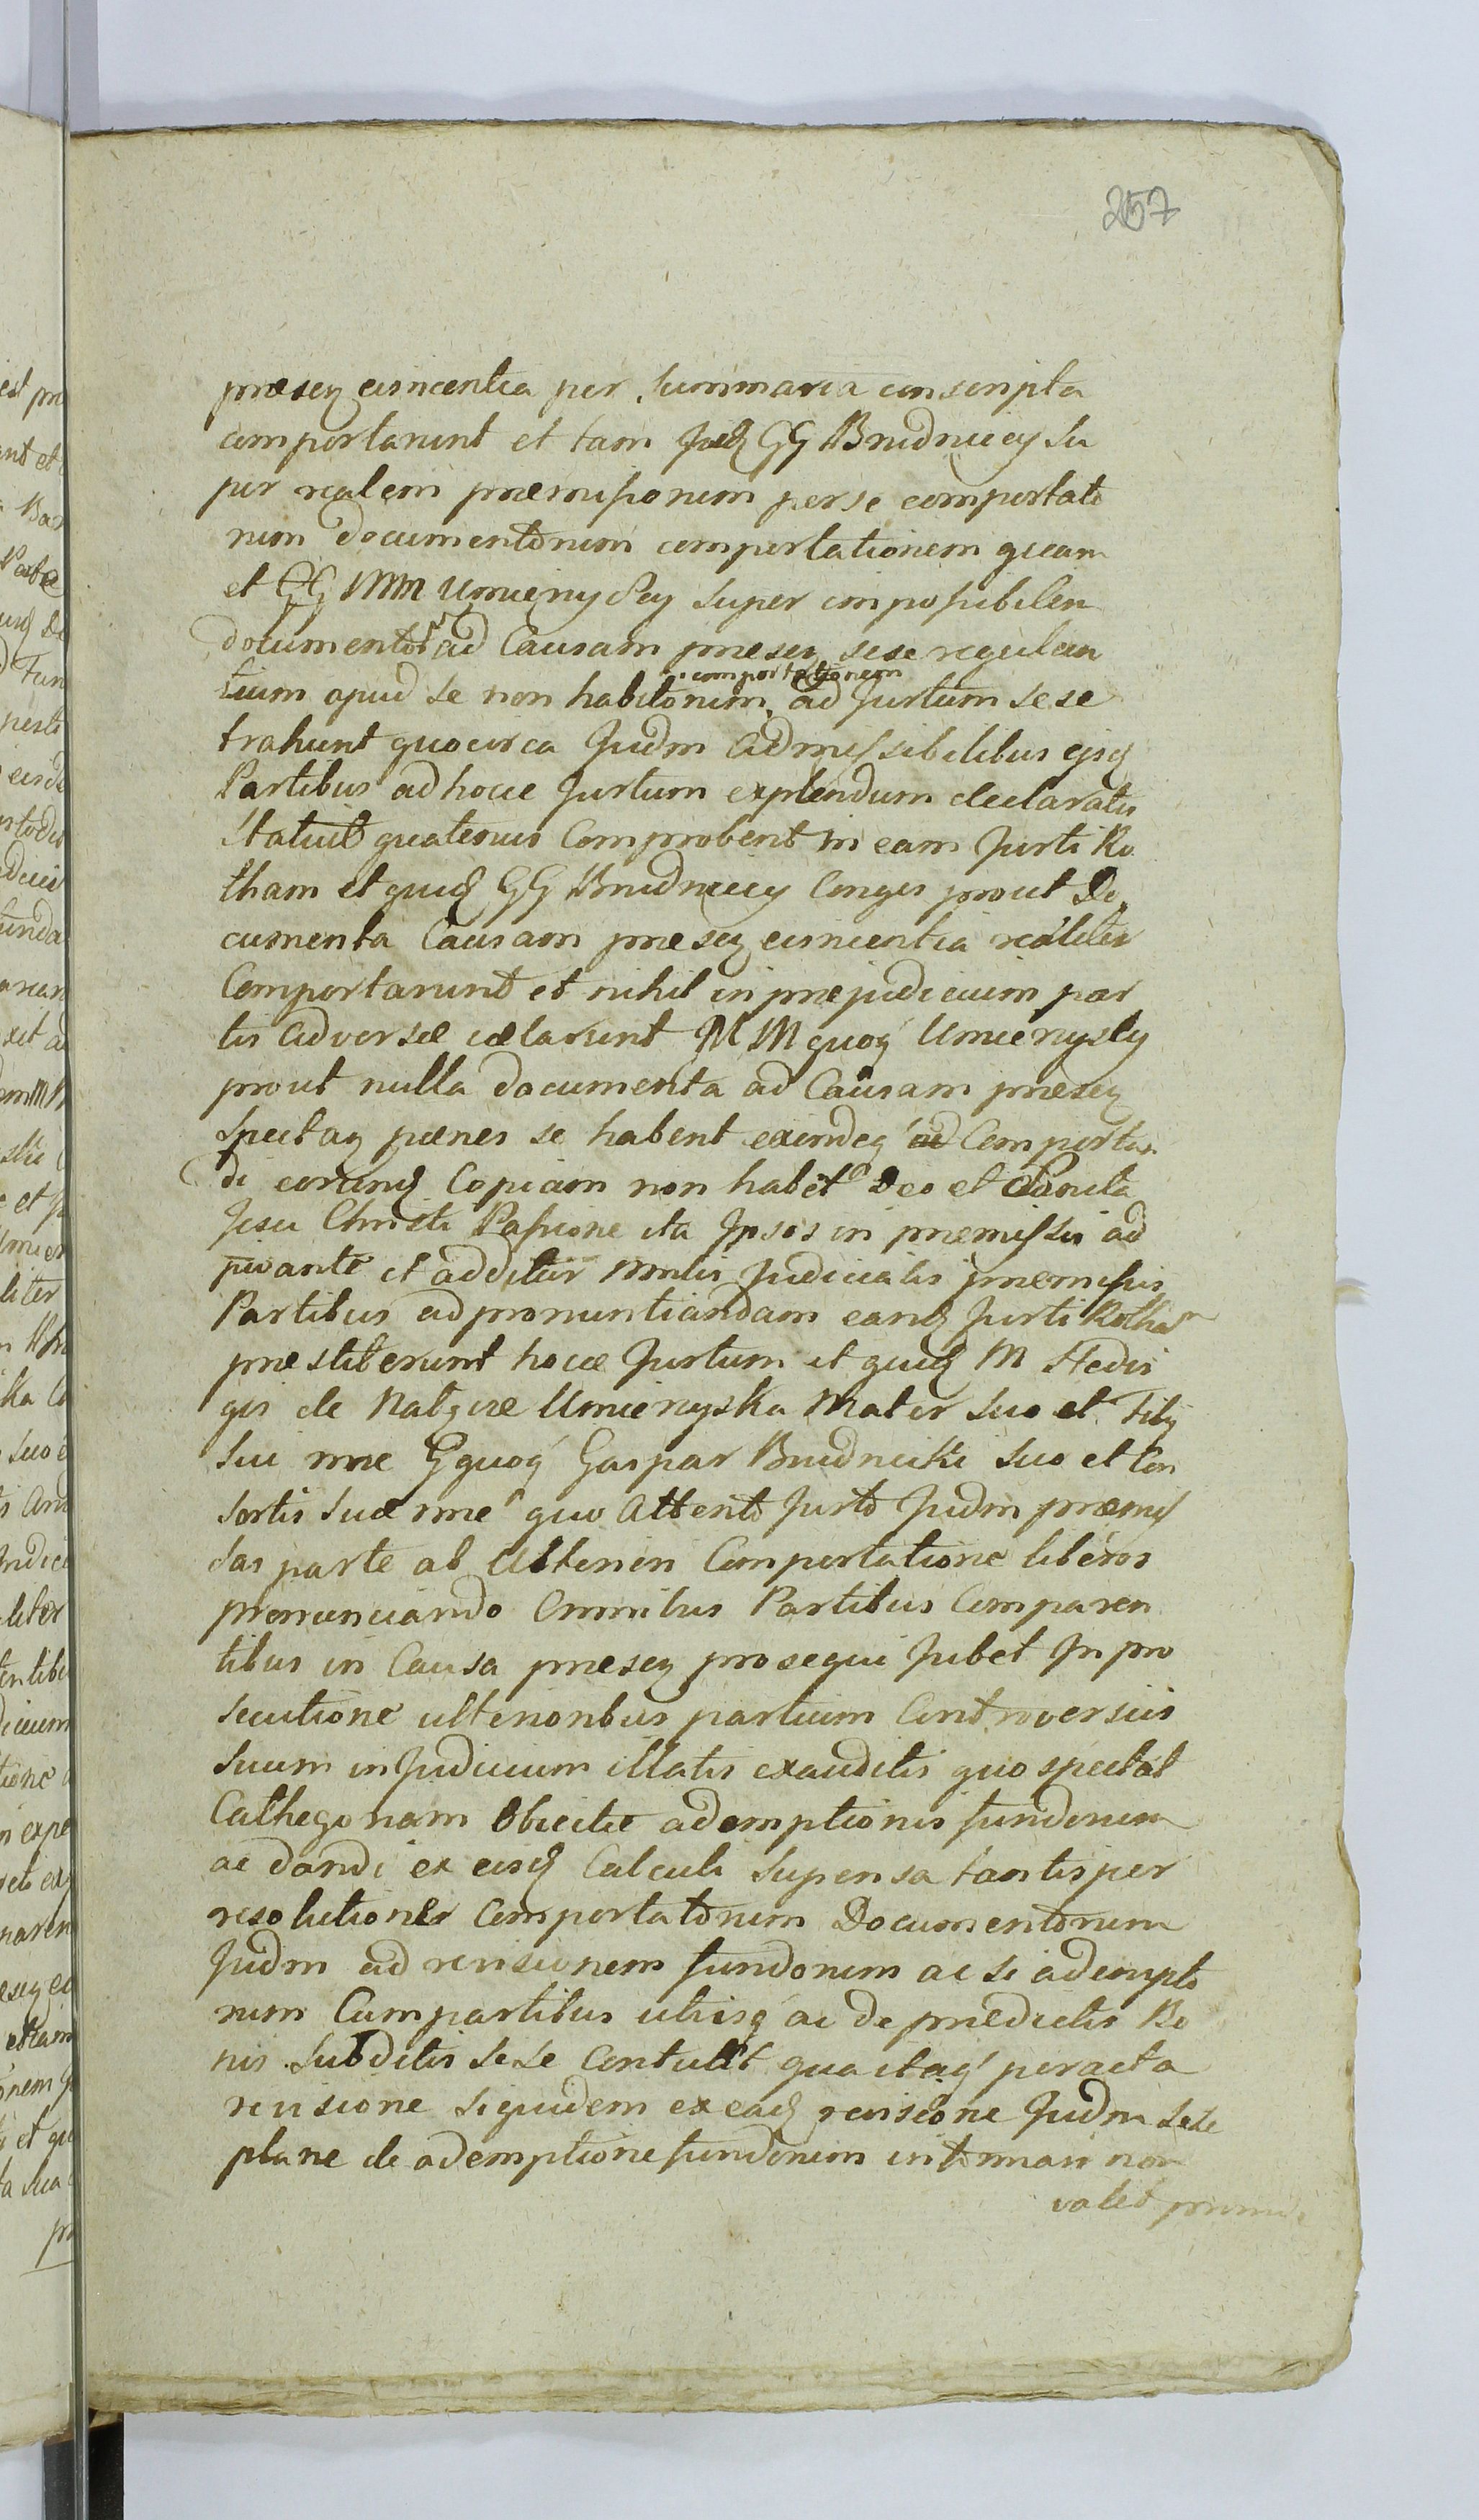 257
præsen evincentia per Summaria conscripta
comportarunt et tam Jidem GG Brudniccy Su
per realem præmissionem per se comportato
rum documentorum comportationem quam
et GG MM Umienyscy super impossibilem
documentor ad Causam præsen sese regulan
tium apud se non habitorum comportationem ad Jurtum sese
trahunt quocirca Judm admissibilibus ejsq
Partibus ad hocce Jurtum explendum declaratis
Statuit quatenus Comprobent in eam Jurti Ro
tham et quid GG Brudniccy Conges prout Do
cumenta Causam præsen evincentia realiter
Comportarunt et nihil in præjudicium par
tis adversæ celarunt MM quoq Umienyscy
prout nulla documenta ad Causam præsen
Spectan penes se habent exindeq ad Comportan
di eorund Copiam non habet Deo et Sancta
Jesu Christi Passione ita Ipsos in præmissis ad
juvante et additis Mntis Judicialis præmissis
Partibus ad pronuntiandam eand Jurti Rotham
præstiterunt hocce Jurtum et quid M Hedvi
gis de Umienyska Mater suo et Filij
sui nne G quoq Gaspar Brudnicki suo et Con
sortis suæ nne quo Attento Jurto Judm præmis
sas parte ab Ulteriori Comportatione liberos
pronunciando Omnibus Partibus Comparen
tibus in Causa præsen prosequi Jubet In pro
secutione ulterioribus partium Controversiis
suum in Judicium illatis exauditis quo spectat
Cathegoriam Obiectæ ademptionis fundorum
ac dandi ex eisd Calculi supensa tantisper
resolutione Comportatorum Documentorum
Judm ad revisionem fundorum ac si adempto
rum Cum partibus utrisq ac de prædictis Bo
nis Subditis sese Contulit qua itaq peracta
revisione siquidem ex ead revisione Judm sese
plane de ademptione fundorum informari non
valet